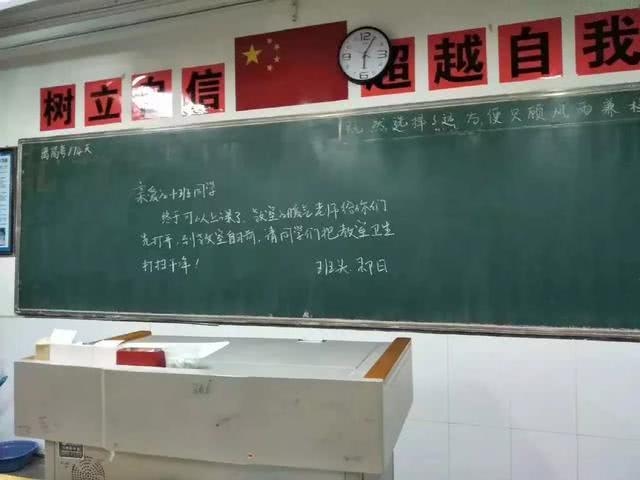 树立自信 超越自我
离高考114天
既然选择了远方便只顾风雨兼
亲爱的十班同学
终于可以上课了,教室的暖气老师给你们
先打开,到教室自习前,请同学们把教室卫生
打扫干净!
班头 即日